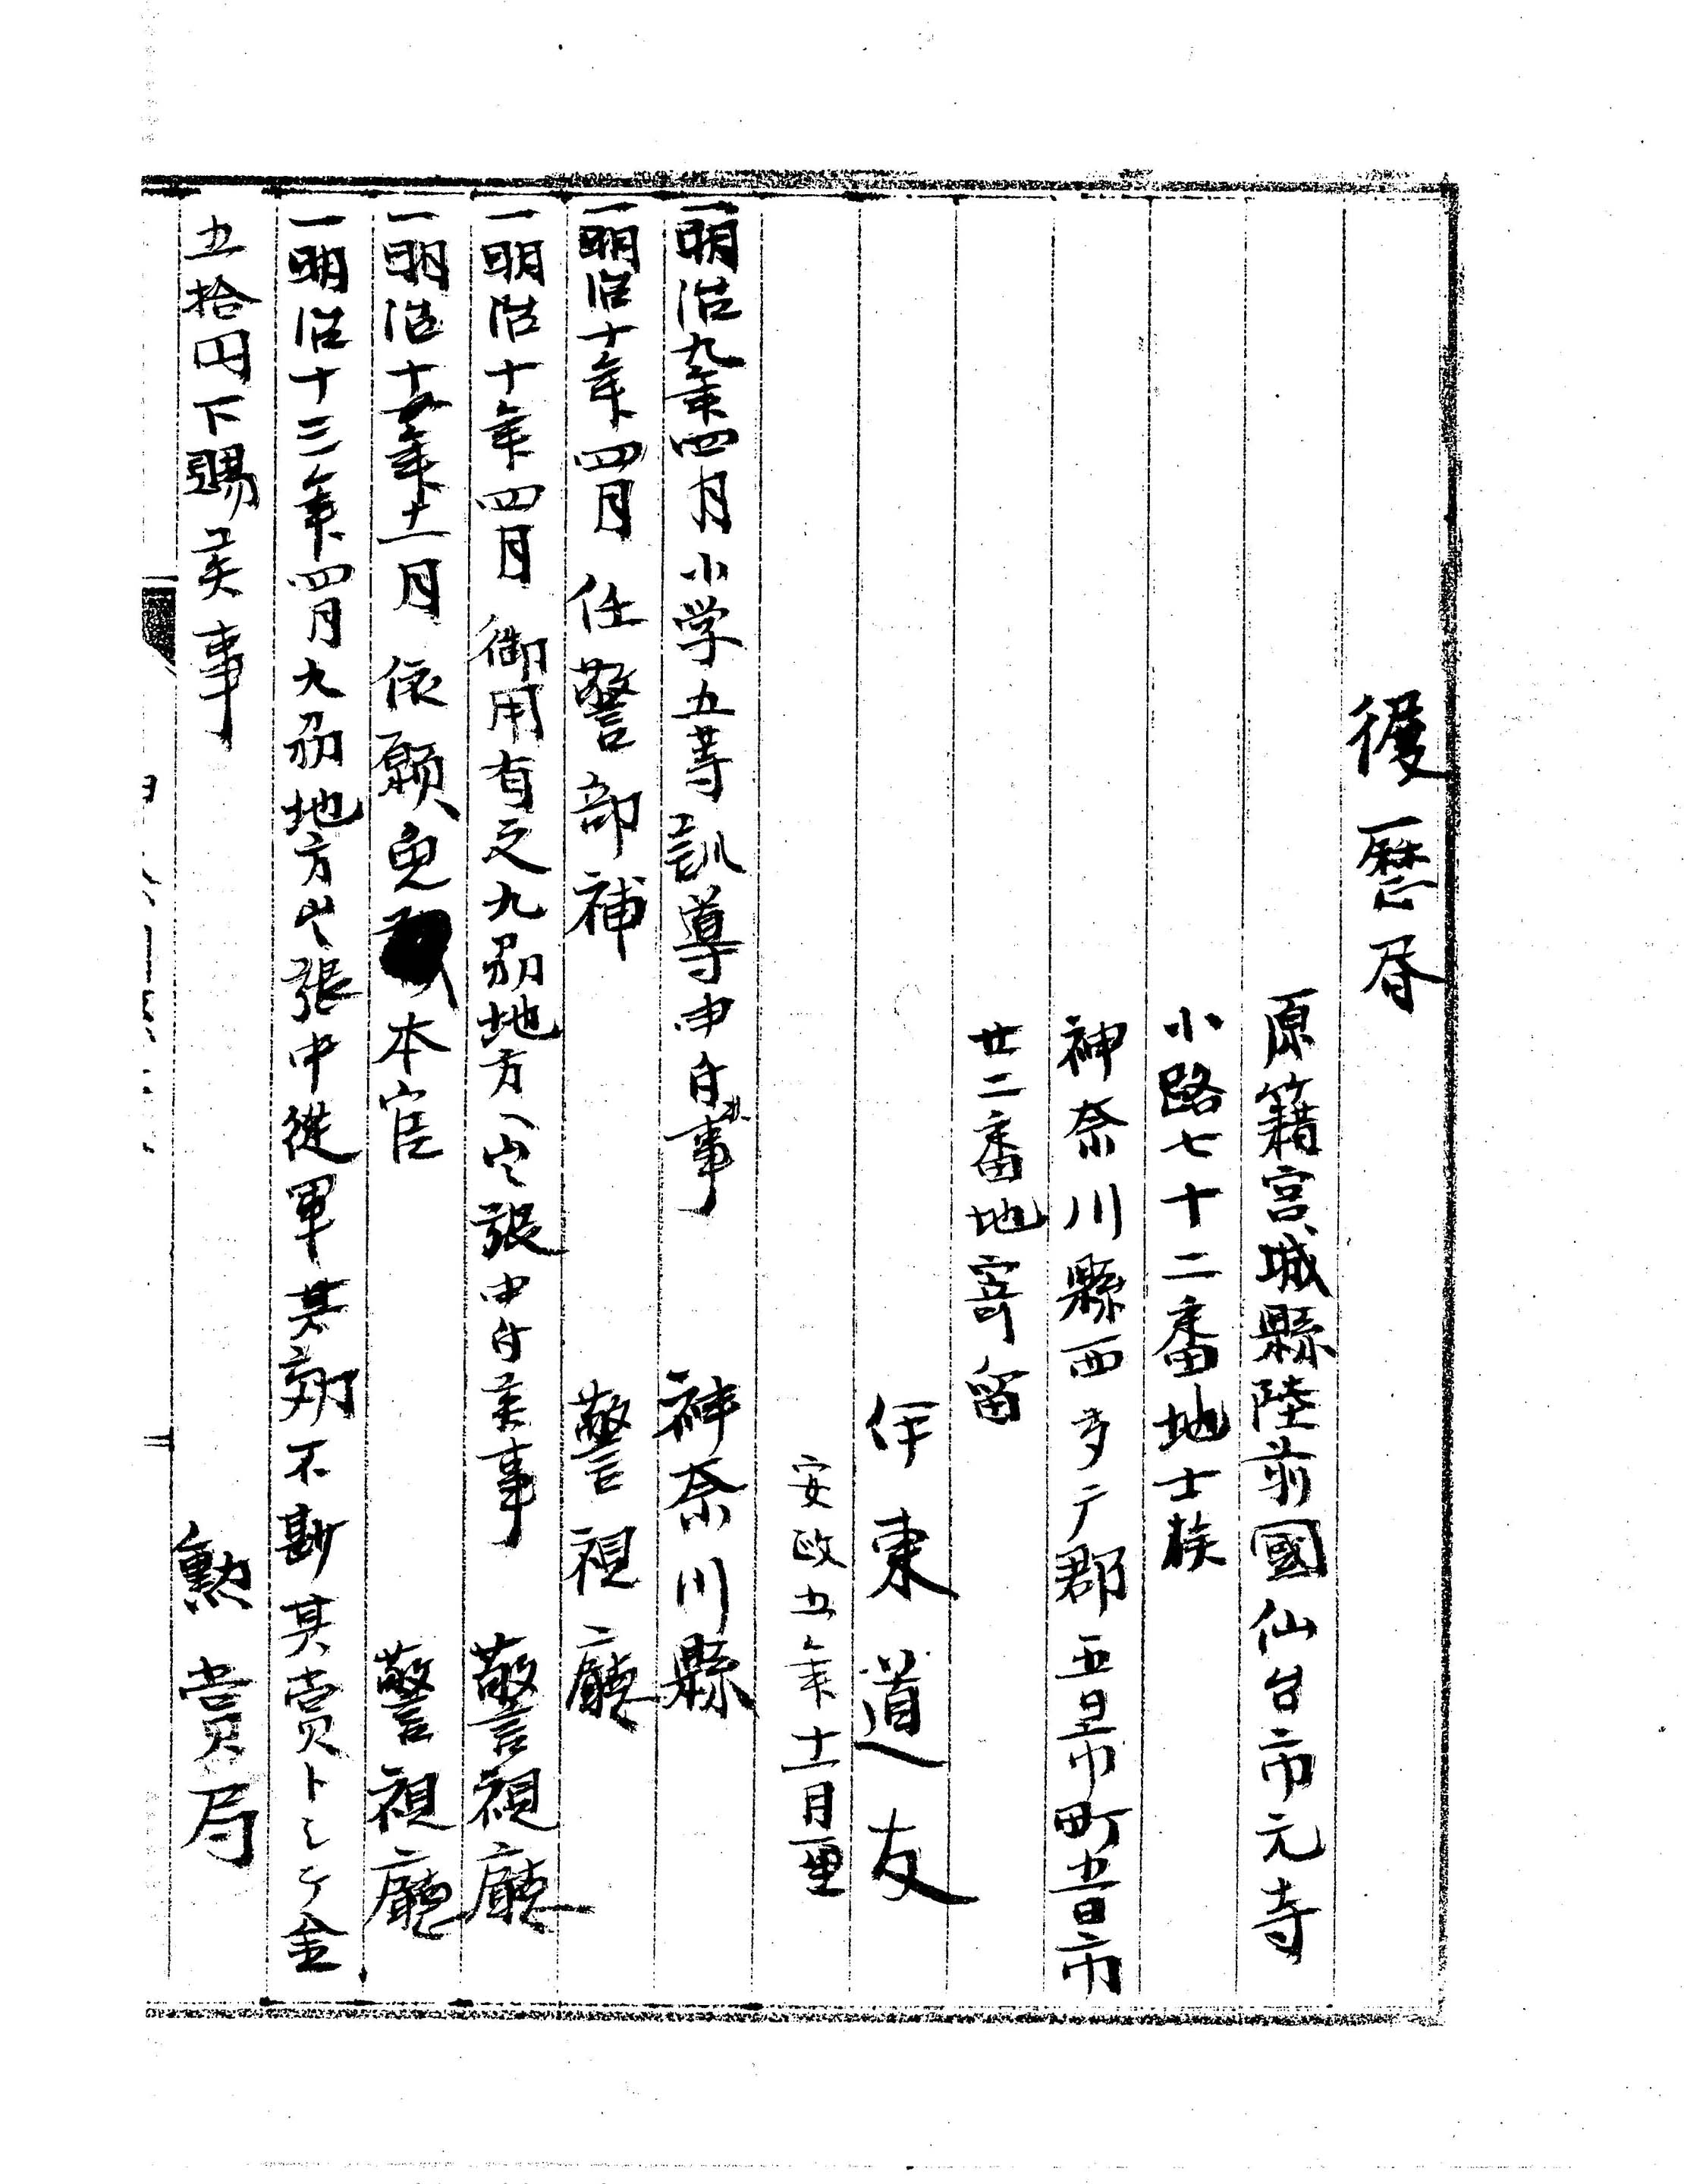 履歴書
原籍宮城縣陸前國仙台市元寺
小路七十二番地士族
神奈川縣西多广郡五日市町五日市
廿二番地寄留
伊東道友
安政五年十一月生
一明治九年四月小学五等訓導申付候事 神奈川縣
一明治十年四月 任警部補 警視廳
一明治十年四月 御用有之九州地方へ出張申付候事 警視廳
一明治十年十一月 依願免本官 警視廳
一明治十三年四月九州地方出張中從軍其労不尠其賞トシテ金
五拾円下賜候事 勲賞局